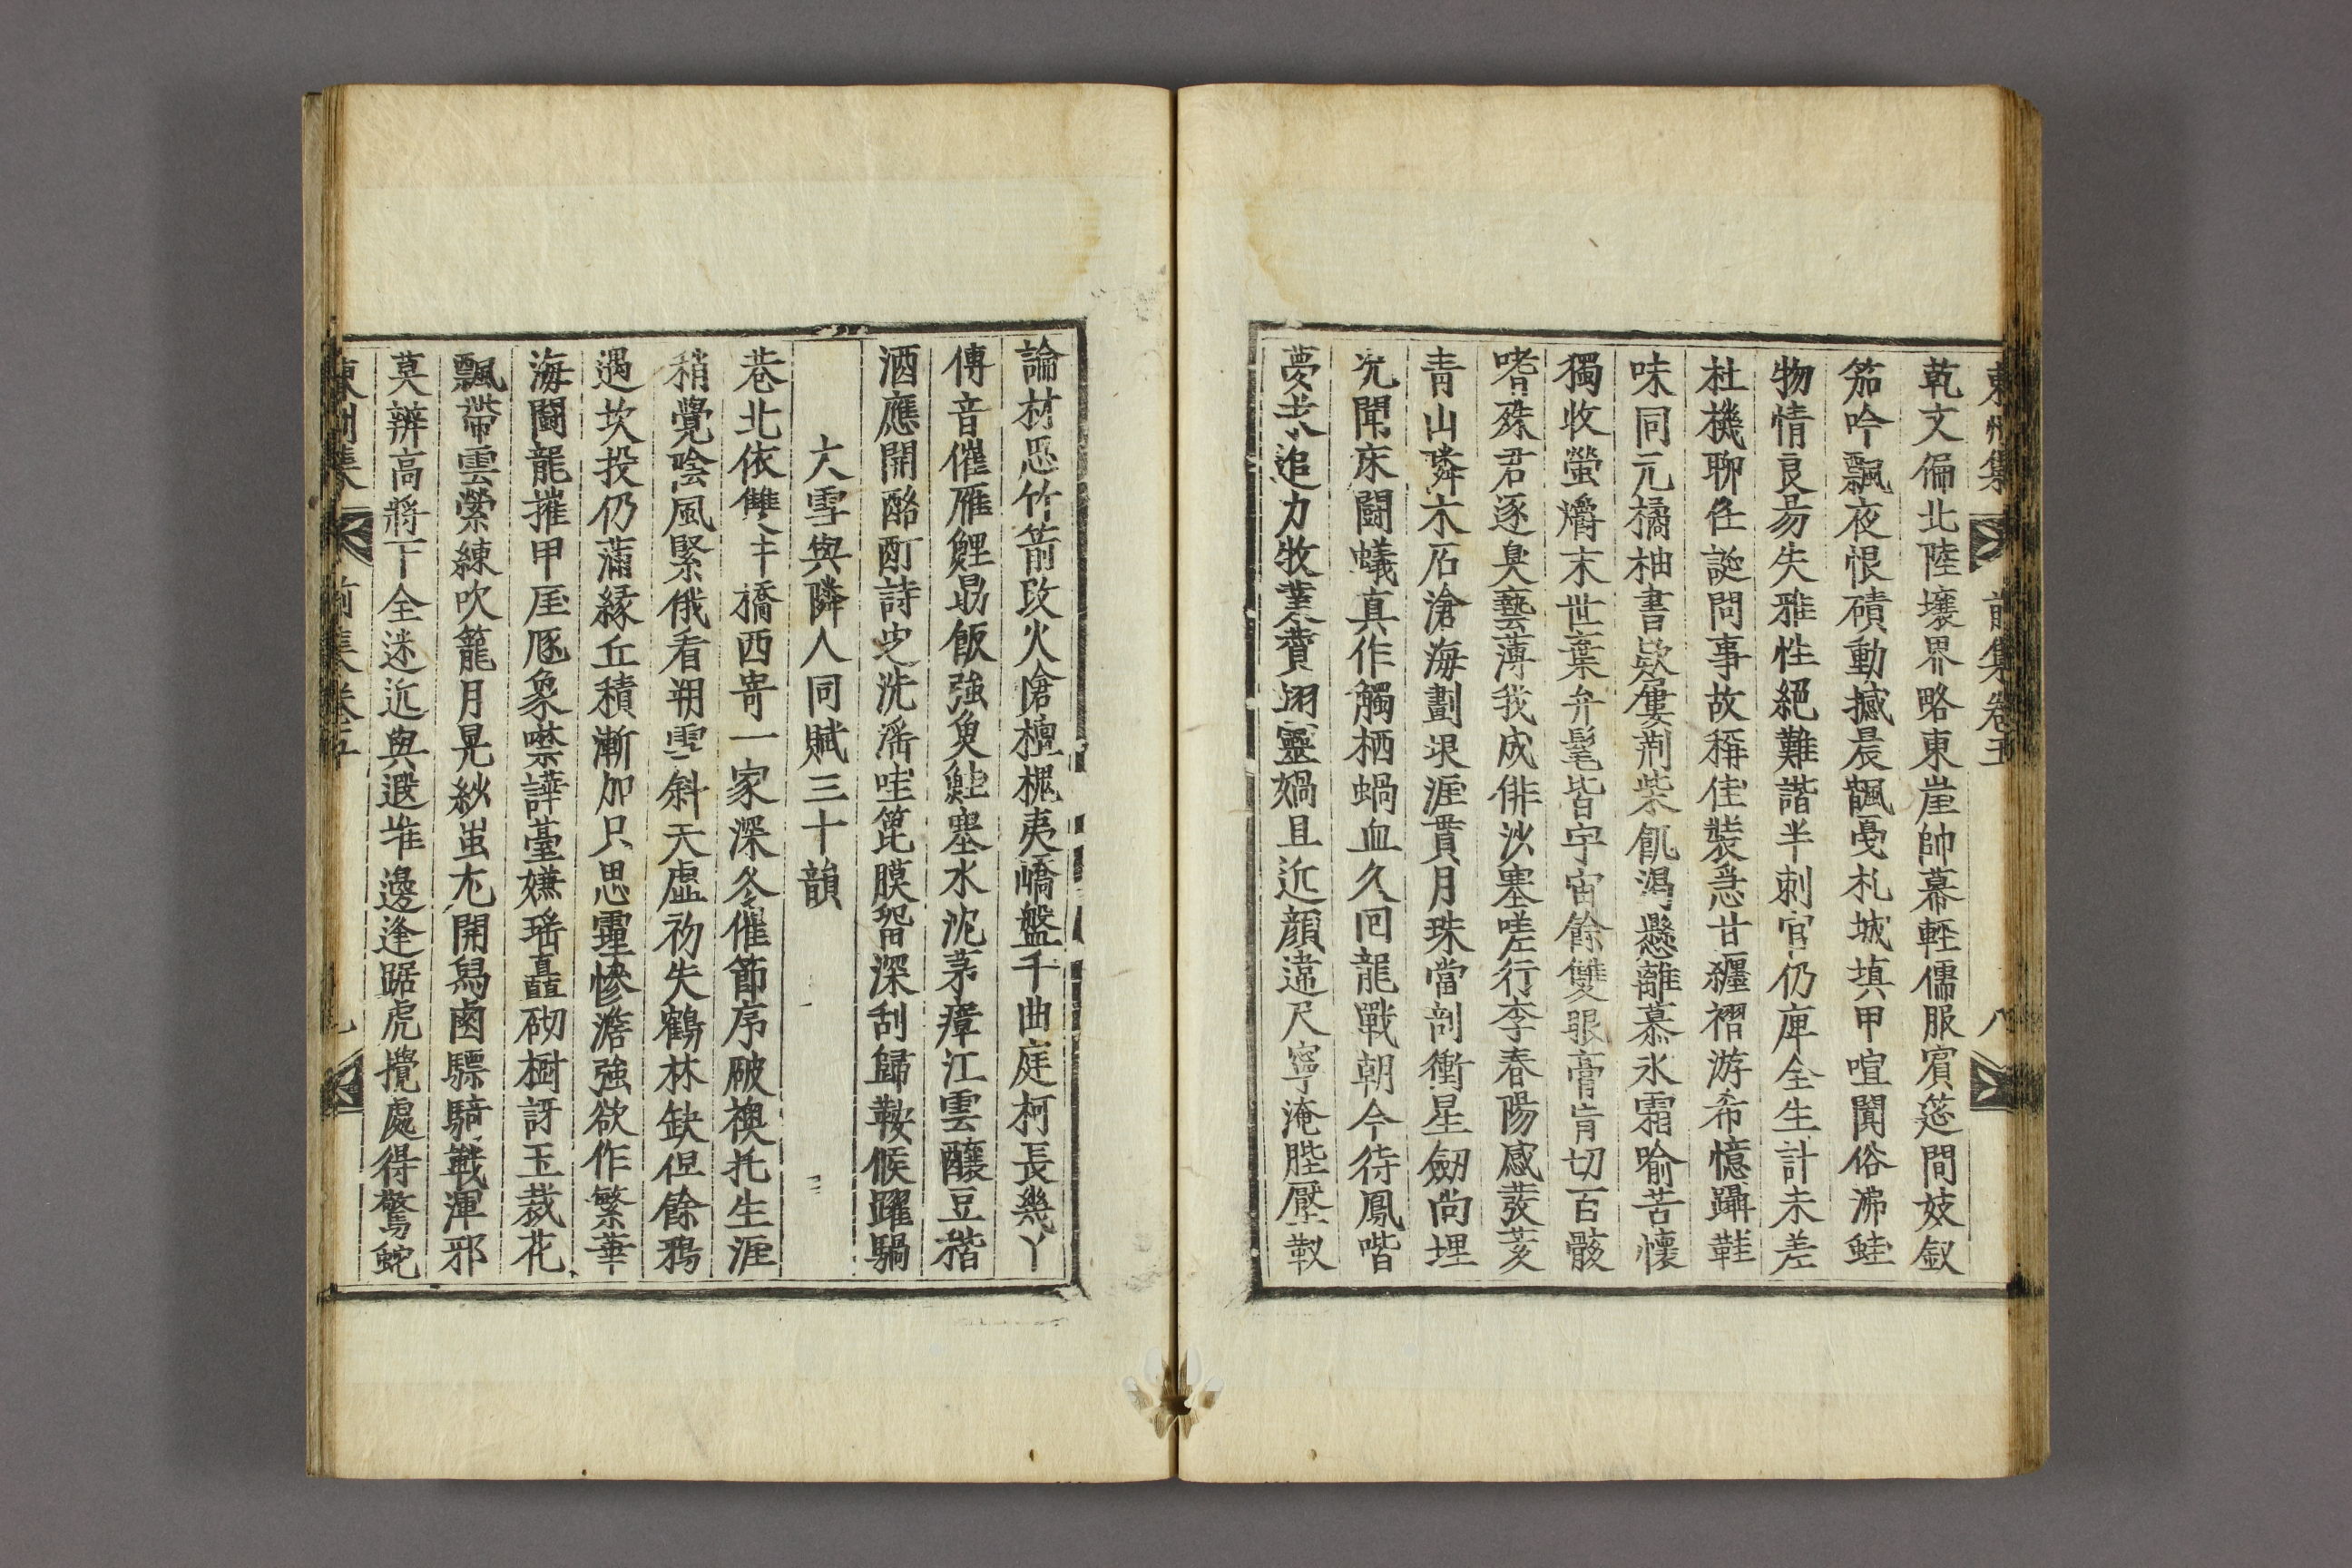 東州集 前集卷五 八
乾文偏北陸壤界略東崖帥幕輕儒服賓筵間妓釵
笳吟飄夜恨磧動撼晨颽戞札城塡甲喧闐俗沸蛙
物情良易失雅性絕難諧半刺官仍庳全生計未差
杜機聊任誕問事故稱佳裝急甘纏褶游希憶躡鞋
味同元橘柚書歎屢荊柴飢渴懸離慕氷霜喻苦懷
獨收螢爝末世棄弁髦皆宇宙餘雙眼膏肓切百骸
嗜殊君逐臭藝薄我成俳沙塞嗟行李春陽感發荄
靑山隣木石滄海劃垠涯貫月珠當剖衝星劒尙埋
旣聞床鬪蟻眞作觸栖蝸血久回龍戰朝今待鳳喈
夢求追力牧業賚翊靈媧且近顏違尺寧淹陛壓靫
論材恧竹箭改火愴檀槐夷嶠盤千曲庭柯長幾丫
傳音催雁鯉勗飯強魚鮭塞水沈茅瘴江雲釀豆稭
酒應開酩酊詩足洗滛哇篦膜昏深刮歸鞍候躍騧
大雪與隣人同賦三十韻
巷北依雙井橋西寄一家深冬催節序破襖托生涯
稍覺陰風緊俄看朔雪斜天虛初失鶴林缺但餘鴉
遇坎投仍滿緣丘積漸加只思霾慘澹強欲作繁華
海鬪龍摧甲厓豗象噤譁臺嫌瑤矗砌樹訝玉裁花
飄帶雲縈練吹籠月晃紗蚩尤開舃鹵驃騎戰渾邪
莫辨高將下全迷近與遐堆邊逢踞虎攪處得驚蛇
東州集 前集卷五 九